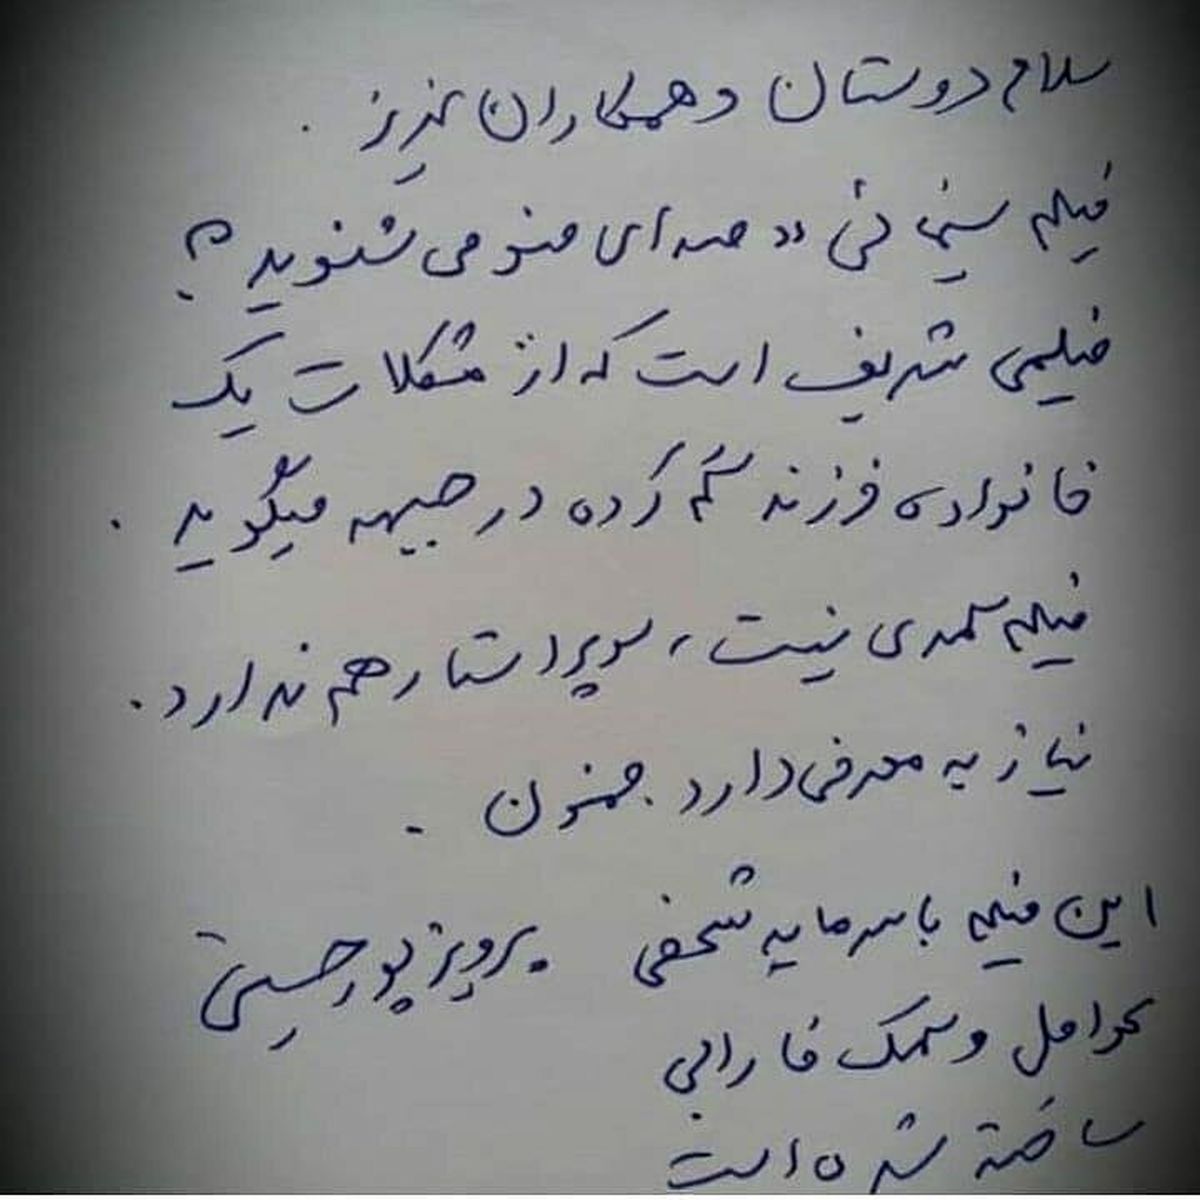 سلام دوستان و همکاران عزیز .
فیلم سینمائی " صدای منو می شنوید ؟
فیلمی شریف است که از مشکلات یک
خانواده فرزند گم کرده در جبهه میگوید .
فیلم کمدی نیست ، سوپر استار هم ندارد .
نیاز به معرفی دارد . ممنون .
این فیلم با سرمایه شخصی
عوامل و کمک فارابی
ساخته شده است
پرویز پورحسینی